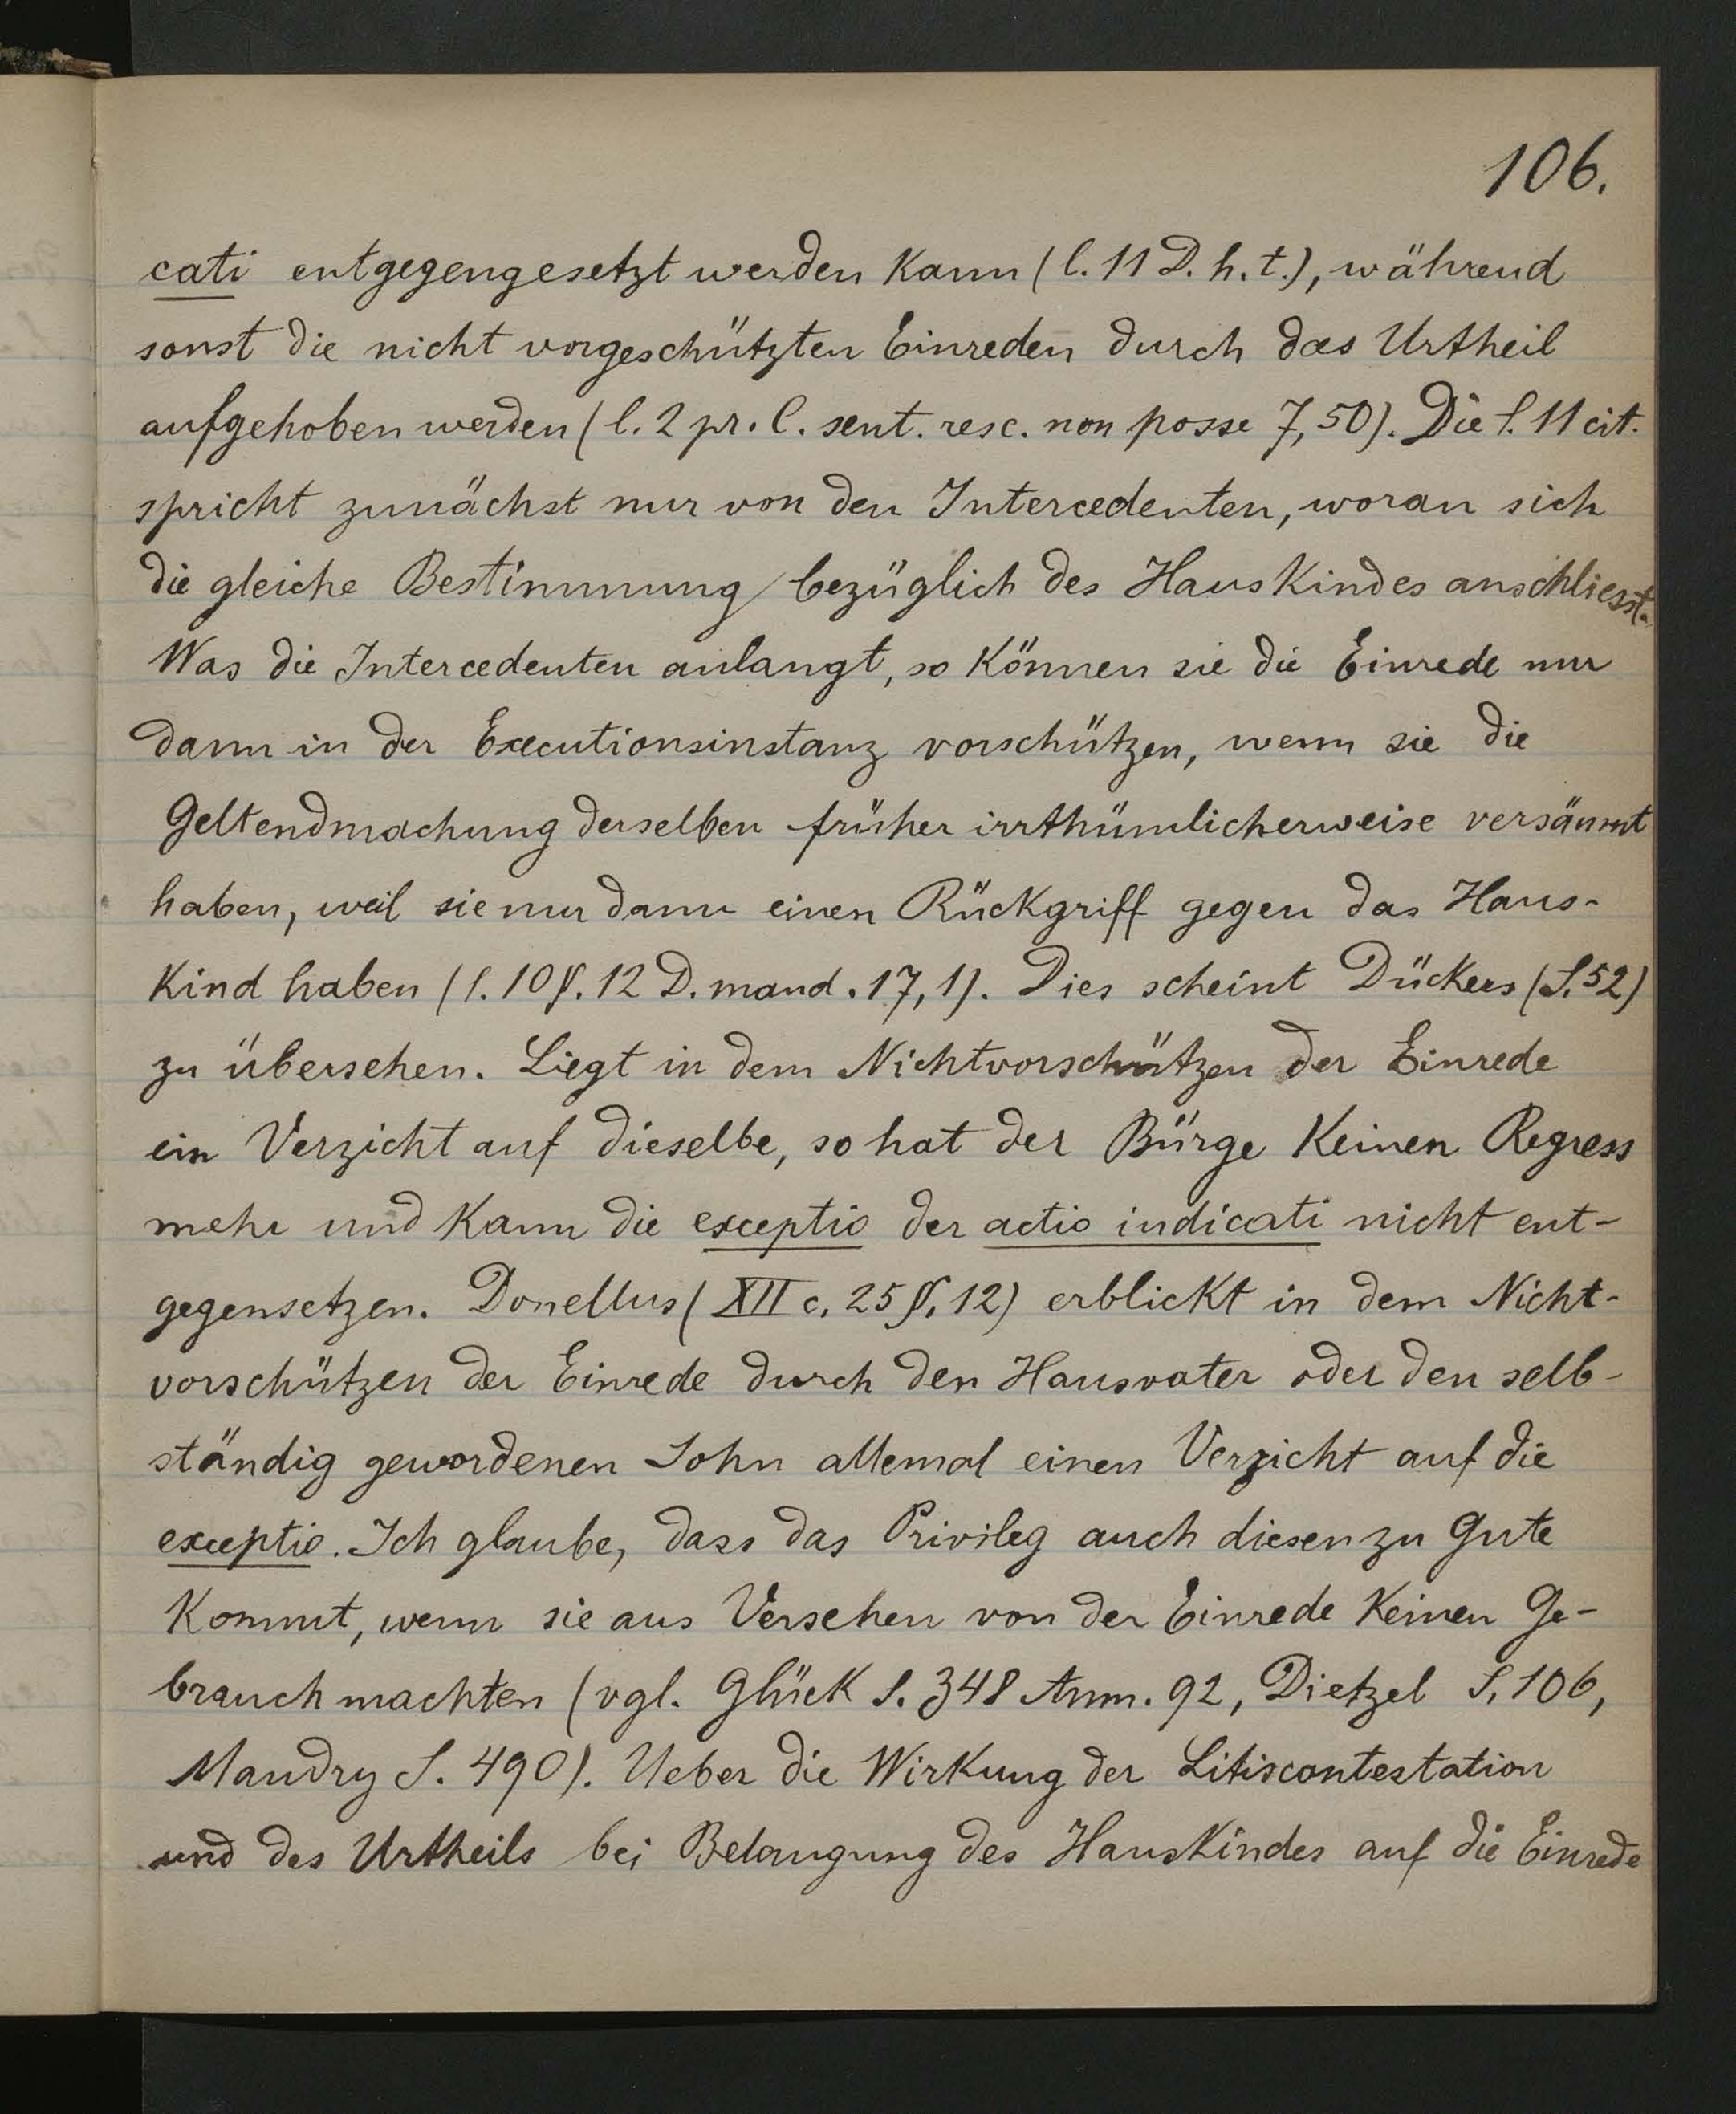 106.
cati entgegengesetzt werden kann (l. 11 D. h. t.), während
sonst die nicht vorgeschützten Einreden durch das Urtheil
aufgehoben werden (l. 2 pr. C. sent. resc. non posse 7,50). Die l. 11 cit.
spricht zunächst nur von den Intercedenten, woran sich
die gleiche Bestimmung bezüglich des Hauskindes anschliesst.
Was die Intercedenten anlangt, so können sie die Einrede nur
dann in der Executionsinstanz vorschützen, wenn sie die
Geltendmachung derselben früher irrthümlicherweise versäumt
haben, weil sie nur dann einen Rückgriff gegen das Haus-
kind haben (l. 10 §. 12 D. mand. 17,1). Dies scheint Dückers (S. 52)
zu übersehen. Liegt in dem Nichtvorschützen der Einrede
ein Verzicht auf dieselbe, so hat der Bürge keinen Regress
mehr und kann die exceptio der actio indicati nicht ent-
gegensetzen. Donellus (XII c. 25 §. 12) erblickt in dem Nicht-
vorschützen der Einrede durch den Hausvater oder den selb-
ständig gewordenen Sohn allemal einen Verzicht auf die
exceptio. Ich glaube, dass das Privileg auch diesen zu Gute
kommt, wenn sie aus Versehen von der Einrede keinen Ge-
brauch machten (vgl. Glück S. 348 Anm. 92, Dietzel S. 106,
Mandry S. 490). Ueber die Wirkung der Litiscontestation
und des Urtheils bei Belangung des Hauskindes auf die Einrede